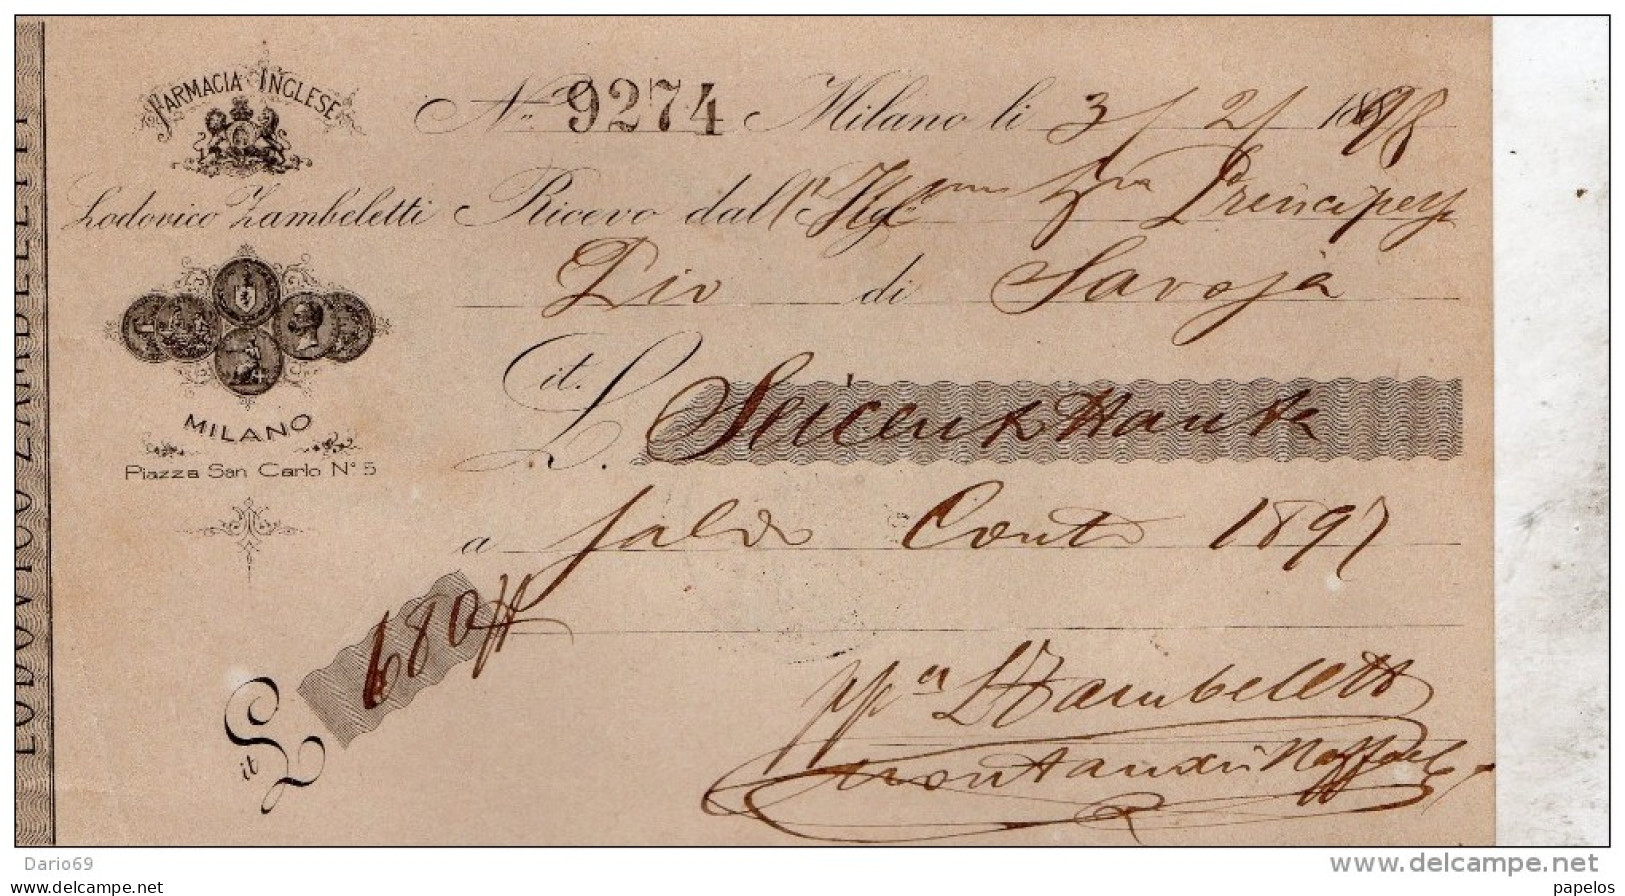 LODOVICO ZAMBELETTI
FARMACIA INGLESE
Lodovico Zambeletti
MILANO
Piazza San Carlo N° 5
N° 9274 Milano li 3/2/1898
Ricevo dall' Principessa
Pio di Savoja
it. L. Seicentottanta
a saldo Conto 1897
it L 680
pp a L Zambeletti
Raffaele
Dario69
www.delcampe.net
papelos